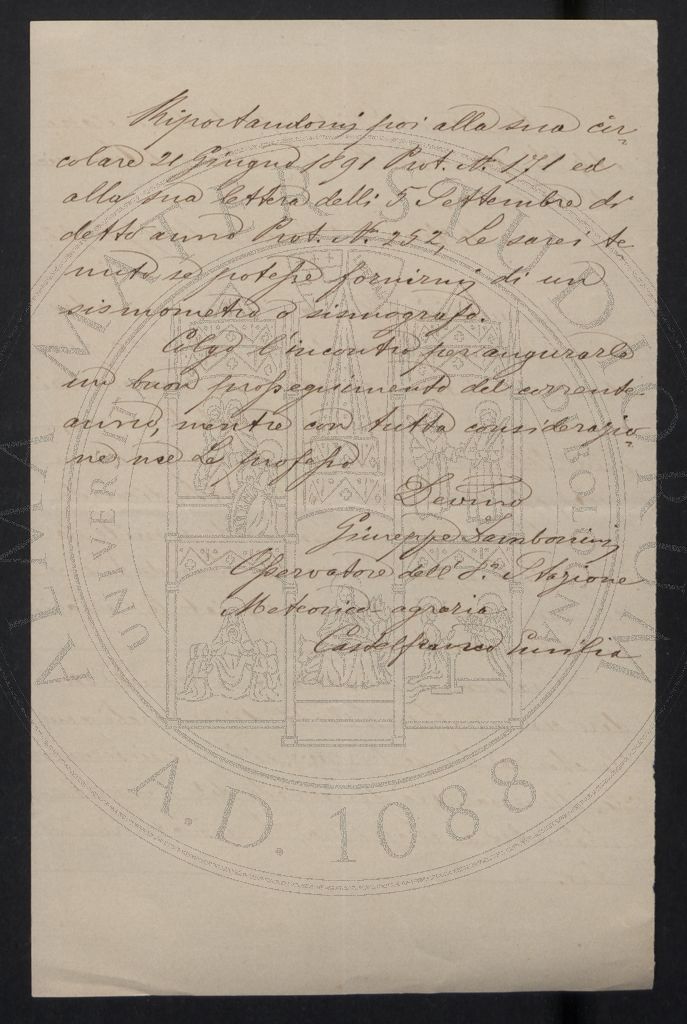 Riportandomi poi alla sua cir-
colare 21 Giugno 1891 Prot. N. 171 ed
alla sua lettera delli 5 Settembre di
detto anno Prot. N. 252, Le sarei te
nuto se potesse fornirmi di un
sismometro o sismografo.
Colgo l'incontro per augurarle
un buon proseguimento del corrente
anno, mentre con tutta considerazio-
ne me Le professo
Devmo
Giuseppe Zambonini
Osservatore dell' Stazione
Meteorico-agraria
Castelfranco Emilia
ALMA MATER STUDIORUM
A.D. 1088